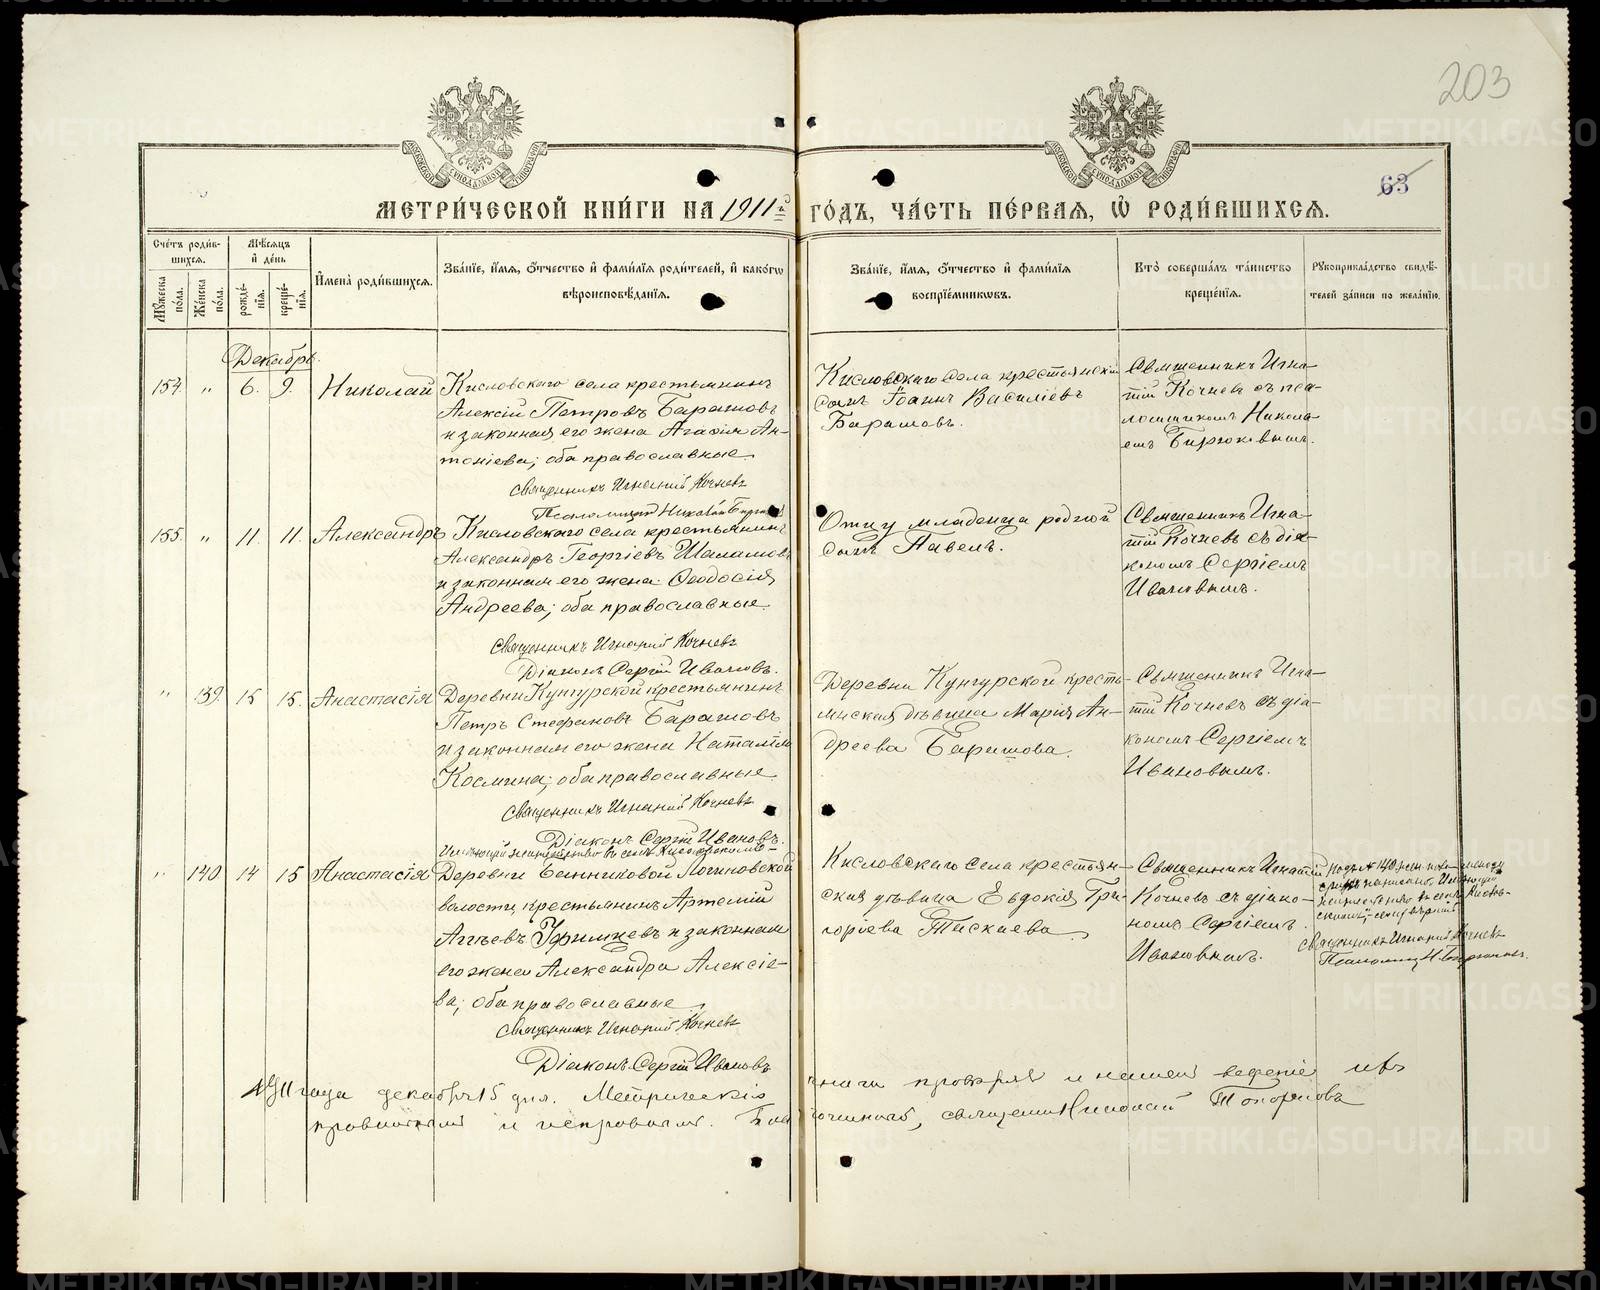 203
63
МЕТРИЧЕСКОЙ КНИГИ НА 1911й ГОДЪ, ЧАСТЬ ПЕРВАЯ, Ѡ РОДИВШИХСЯ.
Счетъ родившихся.
Мужеска пола.
Женска пола.
Мѣсяцъ и день
рожденія.
крещенія.
Имена родившихся.
Званіе, имя, отчество и фамилія родителей, и какогѡ
вѣроисповѣданія.
Званіе, имя, отчество и фамилія
воспріемникѡвъ.
Кто совершалъ таинство
крещенія.
Рукоприкладство свидѣ-
телей записи по желанію.
Декабрь.
154. " 6. 9. Николай
Кисловскаго села крестьянинъ
Алексій Петровъ Барашовъ
и законная его жена Агафія Ан-
тоніева; оба православные
Священникъ Игнатій Кочневъ
Псаломщикъ Николай
Кисловскаго села крестьянскій
сынъ Іоаннъ Василіевъ
Барашовъ.
Священникъ Игна-
тій Кочневъ съ пса-
ломщикомъ Никола-
емъ Бирюковымъ.
155. " 11. 11. Александръ
Кисловскаго села крестьянинъ
Александръ Георгіевъ Шаламовъ
и законная его жена Ѳеодосія
Андреева; оба православные.
Священникъ Игнатій Кочневъ
Діаконъ Сергій Ивановъ.
Отцу младенца родной
сынъ Павелъ.
Священникъ Игна-
тій Кочневъ съ діа-
кономъ Сергіемъ
Ивановымъ.
" 139. 15 15. Анастасія
Деревни Кунгурской крестьянинъ
Петръ Стефановъ Барашовъ
и законная его жена Наталія
Космина; оба православные
Священникъ Игнатій Кочневъ
Діаконъ Сергій Ивановъ.
Деревни Кунгурской кресть-
янская дѣвица Марія Ан-
дреева Барашова.
Священникъ Игна-
тій Кочневъ съ діа-
кономъ Сергіемъ
Ивановымъ.
" 140 14 15 Анастасія
Имѣющій жительство въ селѣ Кисловскомъ
Деревни Банниковой Логиновской
волости, крестьянинъ Артемій
Аггѣевъ Уфимцевъ и законная
его жена Александра Алексіе-
ва; оба православные
Священникъ Игнатій Кочневъ
Діаконъ Сергій Ивановъ
Кисловскаго села крестьян-
ская дѣвица Евдокія Гри-
горіева Таскаева.
Священникъ Игнатій
Кочневъ съ діако-
номъ Сергіемъ
Ивановымъ.
Подъ № 140 жен. пола между
строкъ написано: Имѣющій
жительство въ селѣ Кислов-
скомъ", - сему вѣрить
Священникъ Игнатій Кочневъ
Псаломщ. Н. Бирюковъ.
1911 года декабря 15 дня. Метрическія книги провѣрял и нашел веденіе ихъ
правильным и исправным. Благочинный, священникъ Николай Топорковъ
METRIKI.GASO-URAL.RU